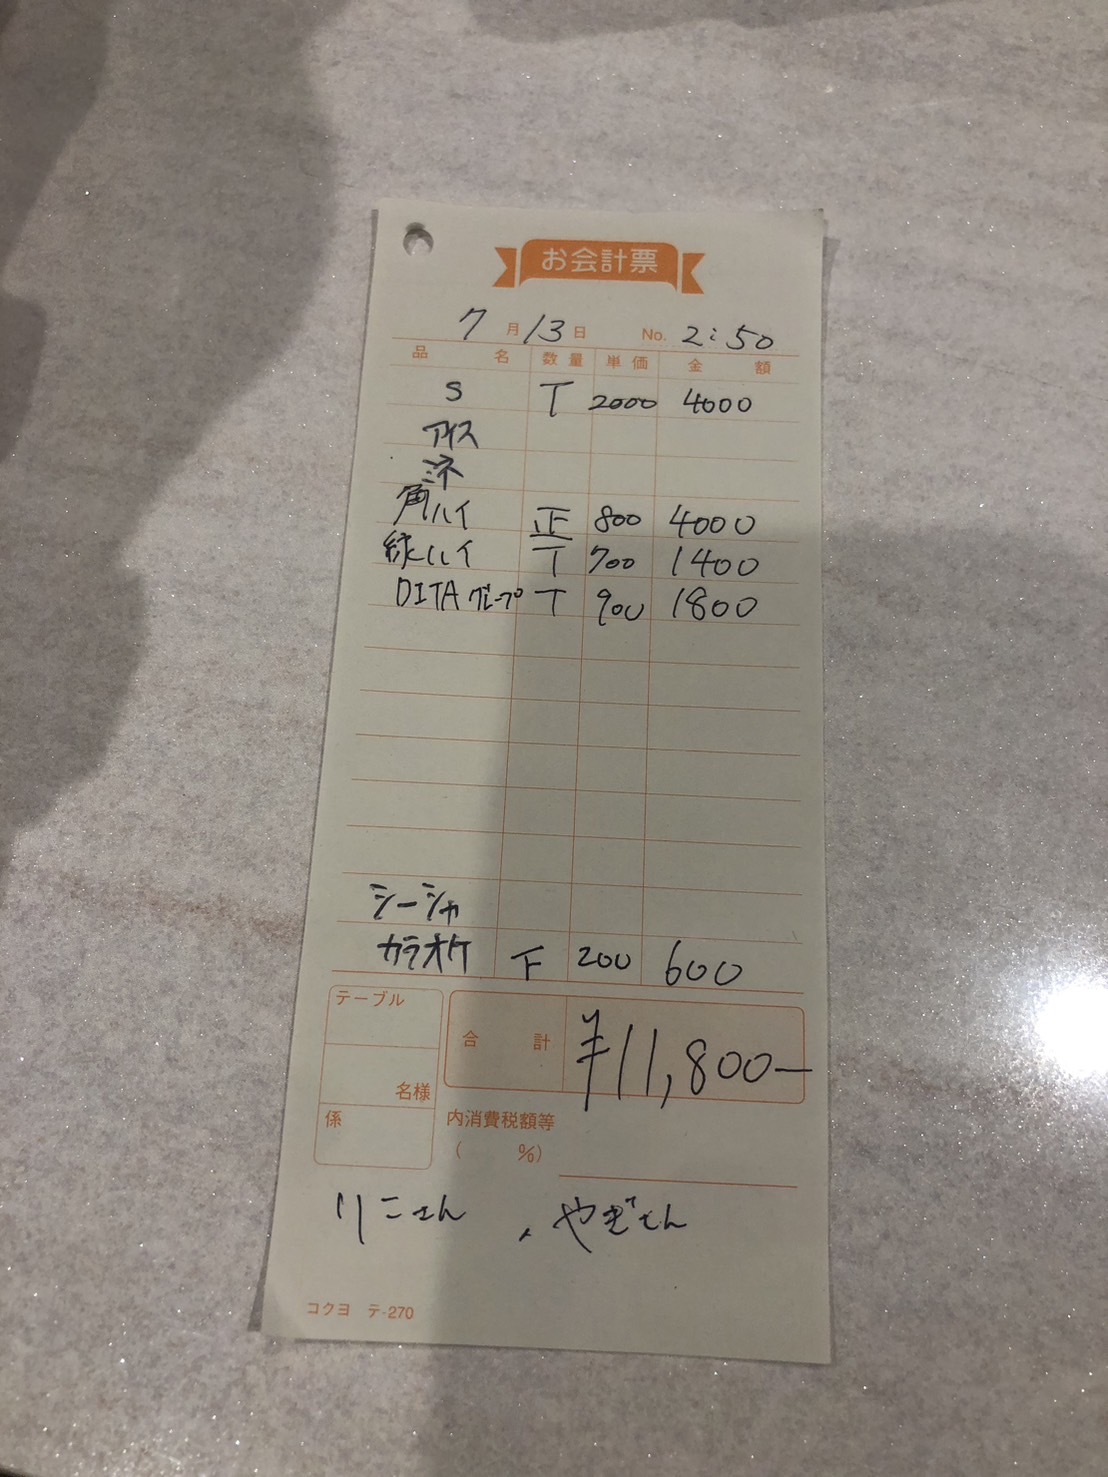 お会計票
7月13日 No. 2:50
品名 数量 単価 金額
S T 2000 4000
アイス
ミネ
角ハイ 正 800 4000
緑ハイ T 700 1400
DITA グレープ T 900 1800
シーシャ
カラオケ 下 200 600
テーブル
名様
係
合計 ¥11,800-
内消費税額等
( %)
りこさん 、やぎさん
コクヨ テ-270